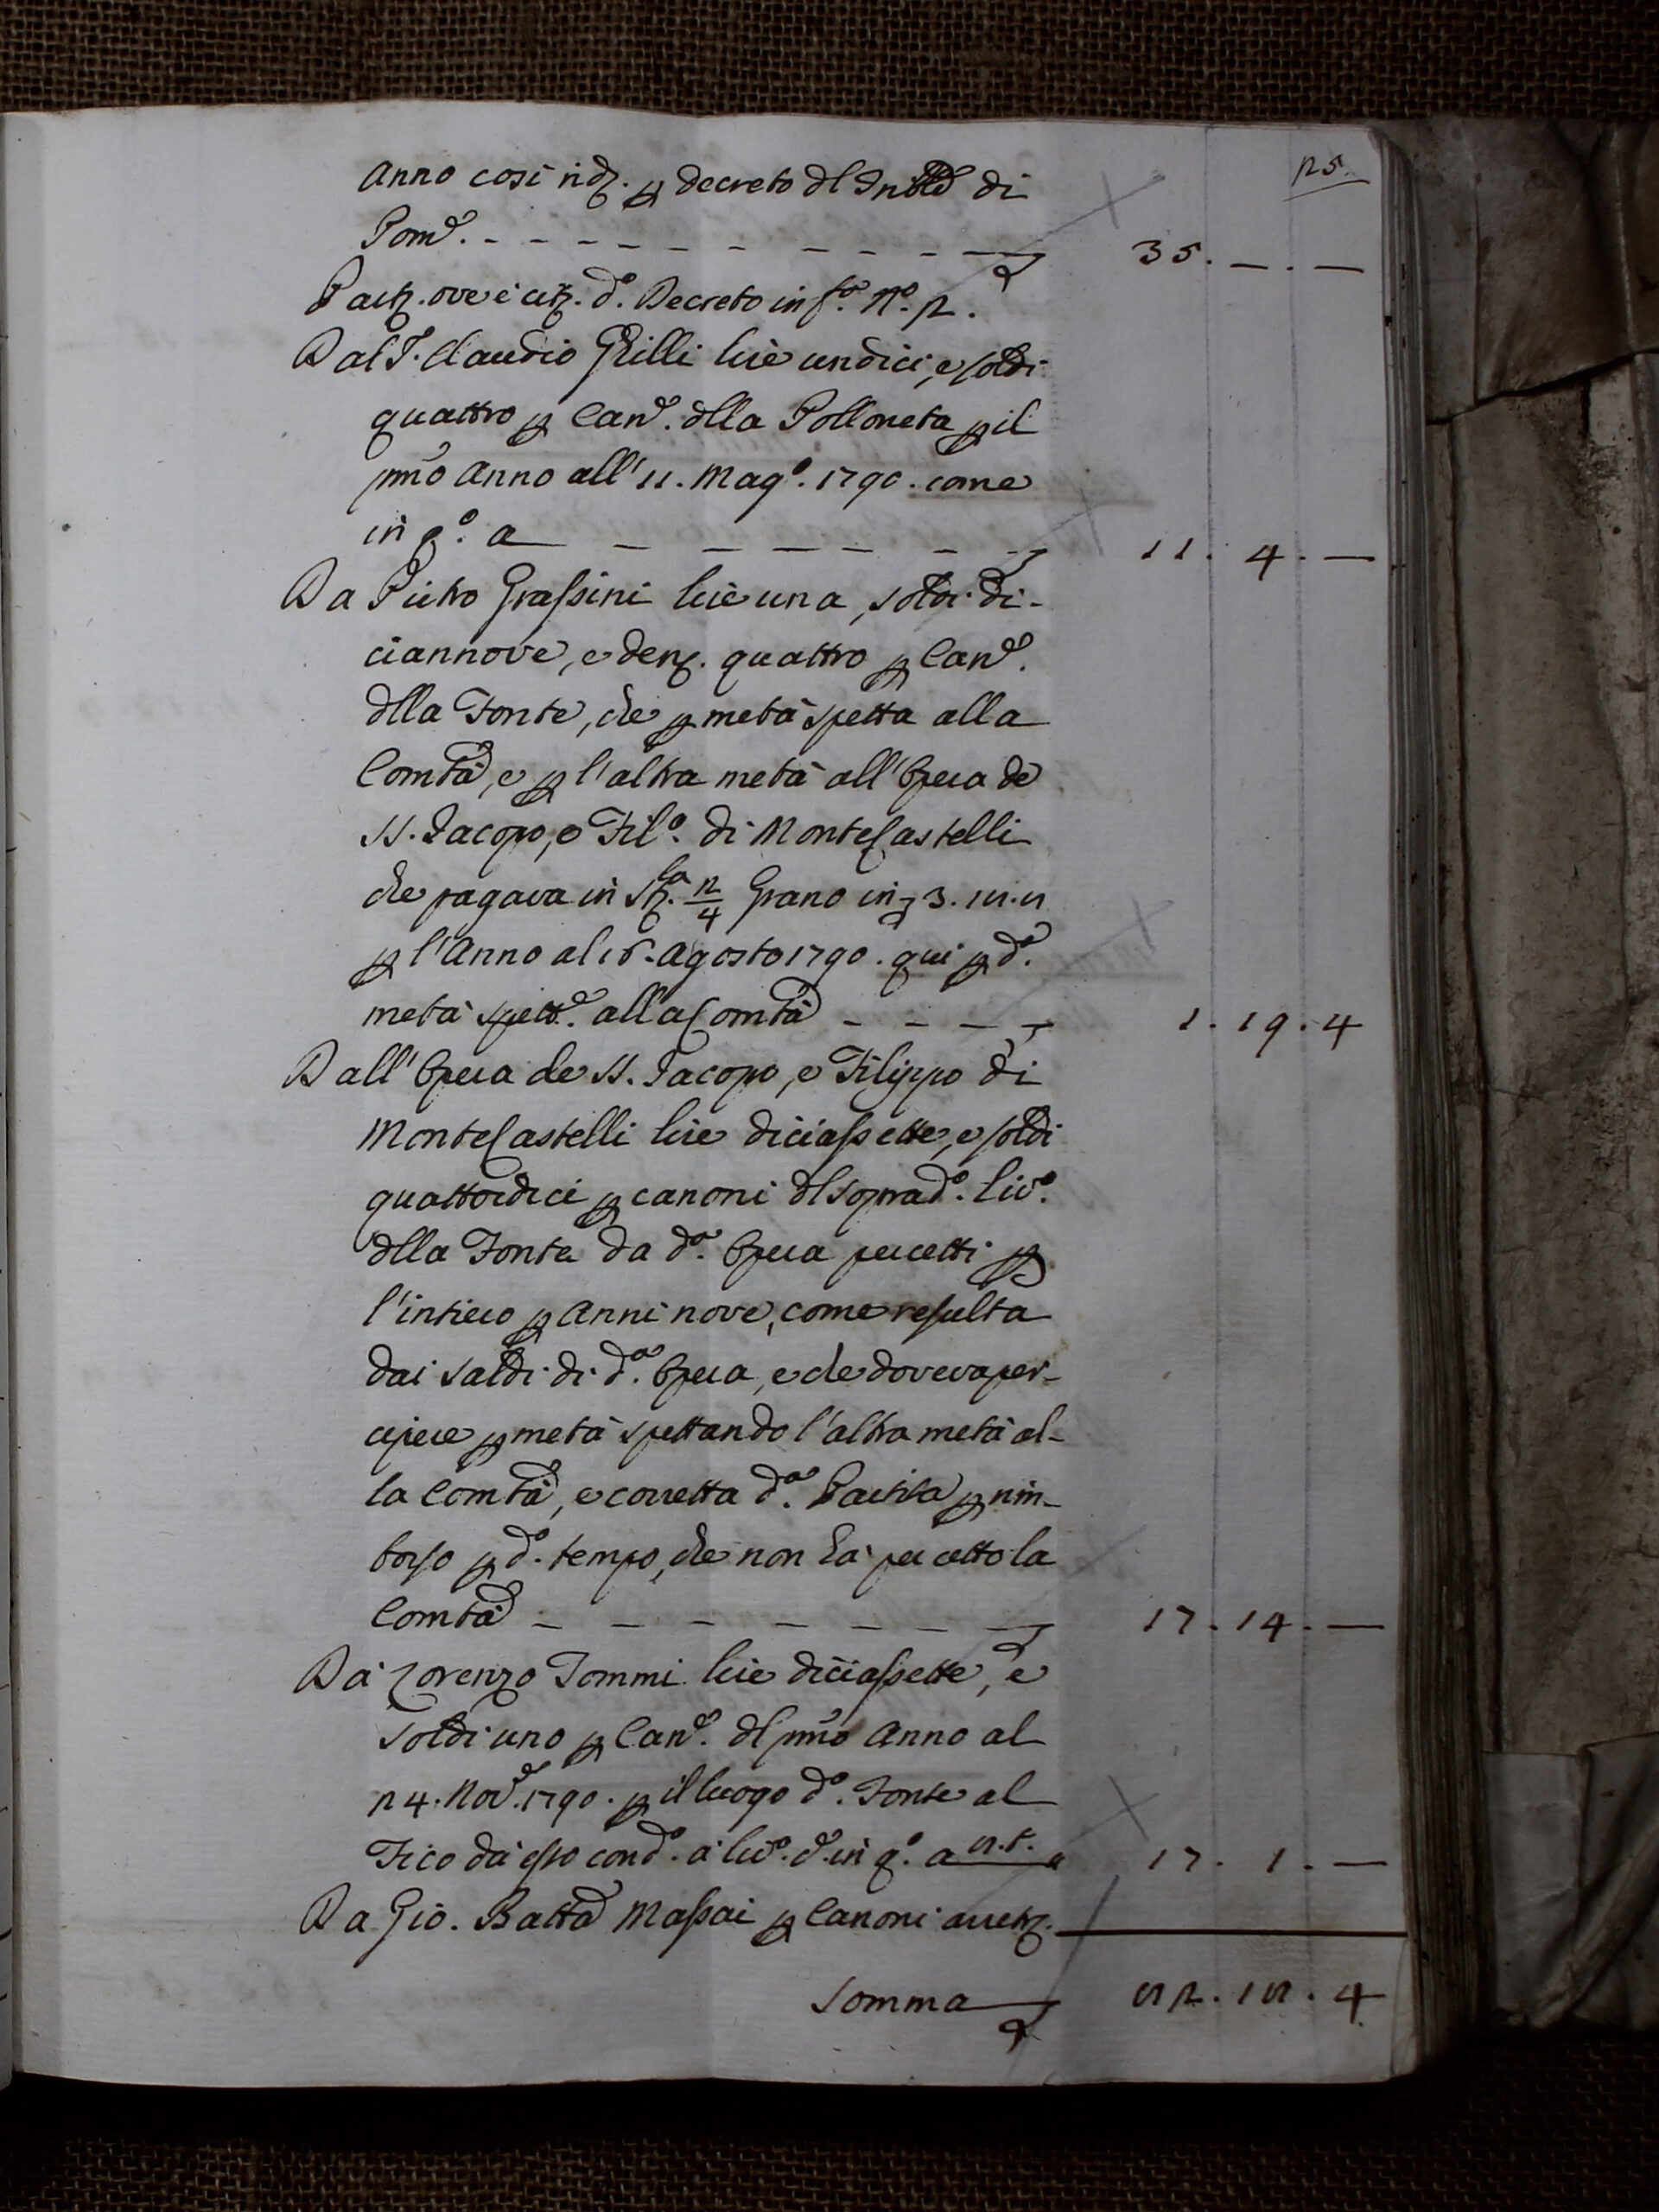 25.
Anno così rid. p decreto dl Giud.e di
Pom.e - - - - - - - - - - 35. — . —
Partz. ove è citz. d.o Decreto in f.a N.o 2.
Dal S. Claudio Grilli lire undici, e soldi
quattro p Can.e dlla Polloneta p il
pmo Anno all' 11. Mag.o 1790. come
in q.o a — — — — — — 11. 4. —
Da Pietro Grassini lire una, soldi di-
ciannove, e denz. quattro p Can.e
dlla Fonte, che p metà spetta alla
Comtà, e p l'altra metà all'Opera de
SS. Jacopo, e Fil.o di MonteCastelli
che pagava in St.a 2/4 Grano in z 3. 18. 8
p l'Anno al 16. Agosto 1790. qui p d.a
metà spett.e alla Comtà - - - - 1. 19. 4
Dall'Opera de SS. Jacopo, e Filippo di
MonteCastelli lire diciassette, e soldi
quattordici p canoni dl soprad.o Liv.o
dlla Fonte da d.a Opera percetti p
l'intiero p Anni nove, come resulta
dai saldi di d.a Opera, e che doveva per-
cipere p metà spettando l'altra metà al-
la Comtà, e corretta d.a Partita p rim-
borso p d.o tempo, che non hà percetto la
Comtà — — — — — — — 17. 14. —
Da Lorenzo Tommi lire diciassette, e
soldi uno p Can.e dl pmo Anno al
24. Nov.e 1790. p il luogo d.o Fonte al
Fico da esso cond.o a liv.o in q.o a 17. 1. —
Da Gio. Batta Massai p Canoni arretz.
Somma 82. 18. 4